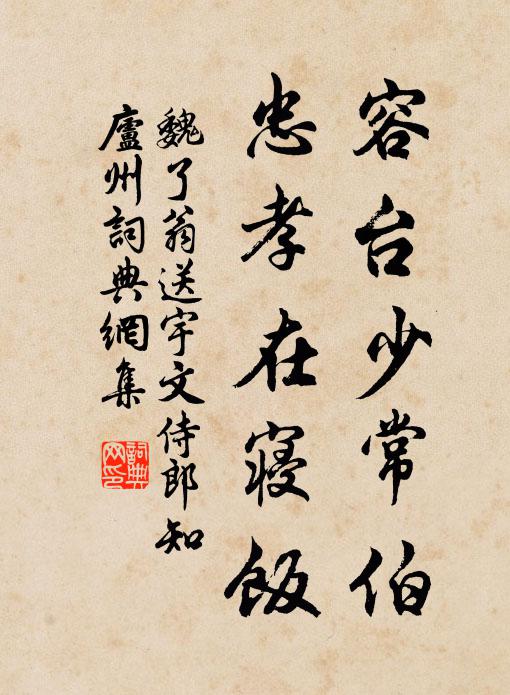 容台少常伯
忠孝在寝飯
魏了翁送宇文侍郎知
廬州詞典網集
詞典
网印